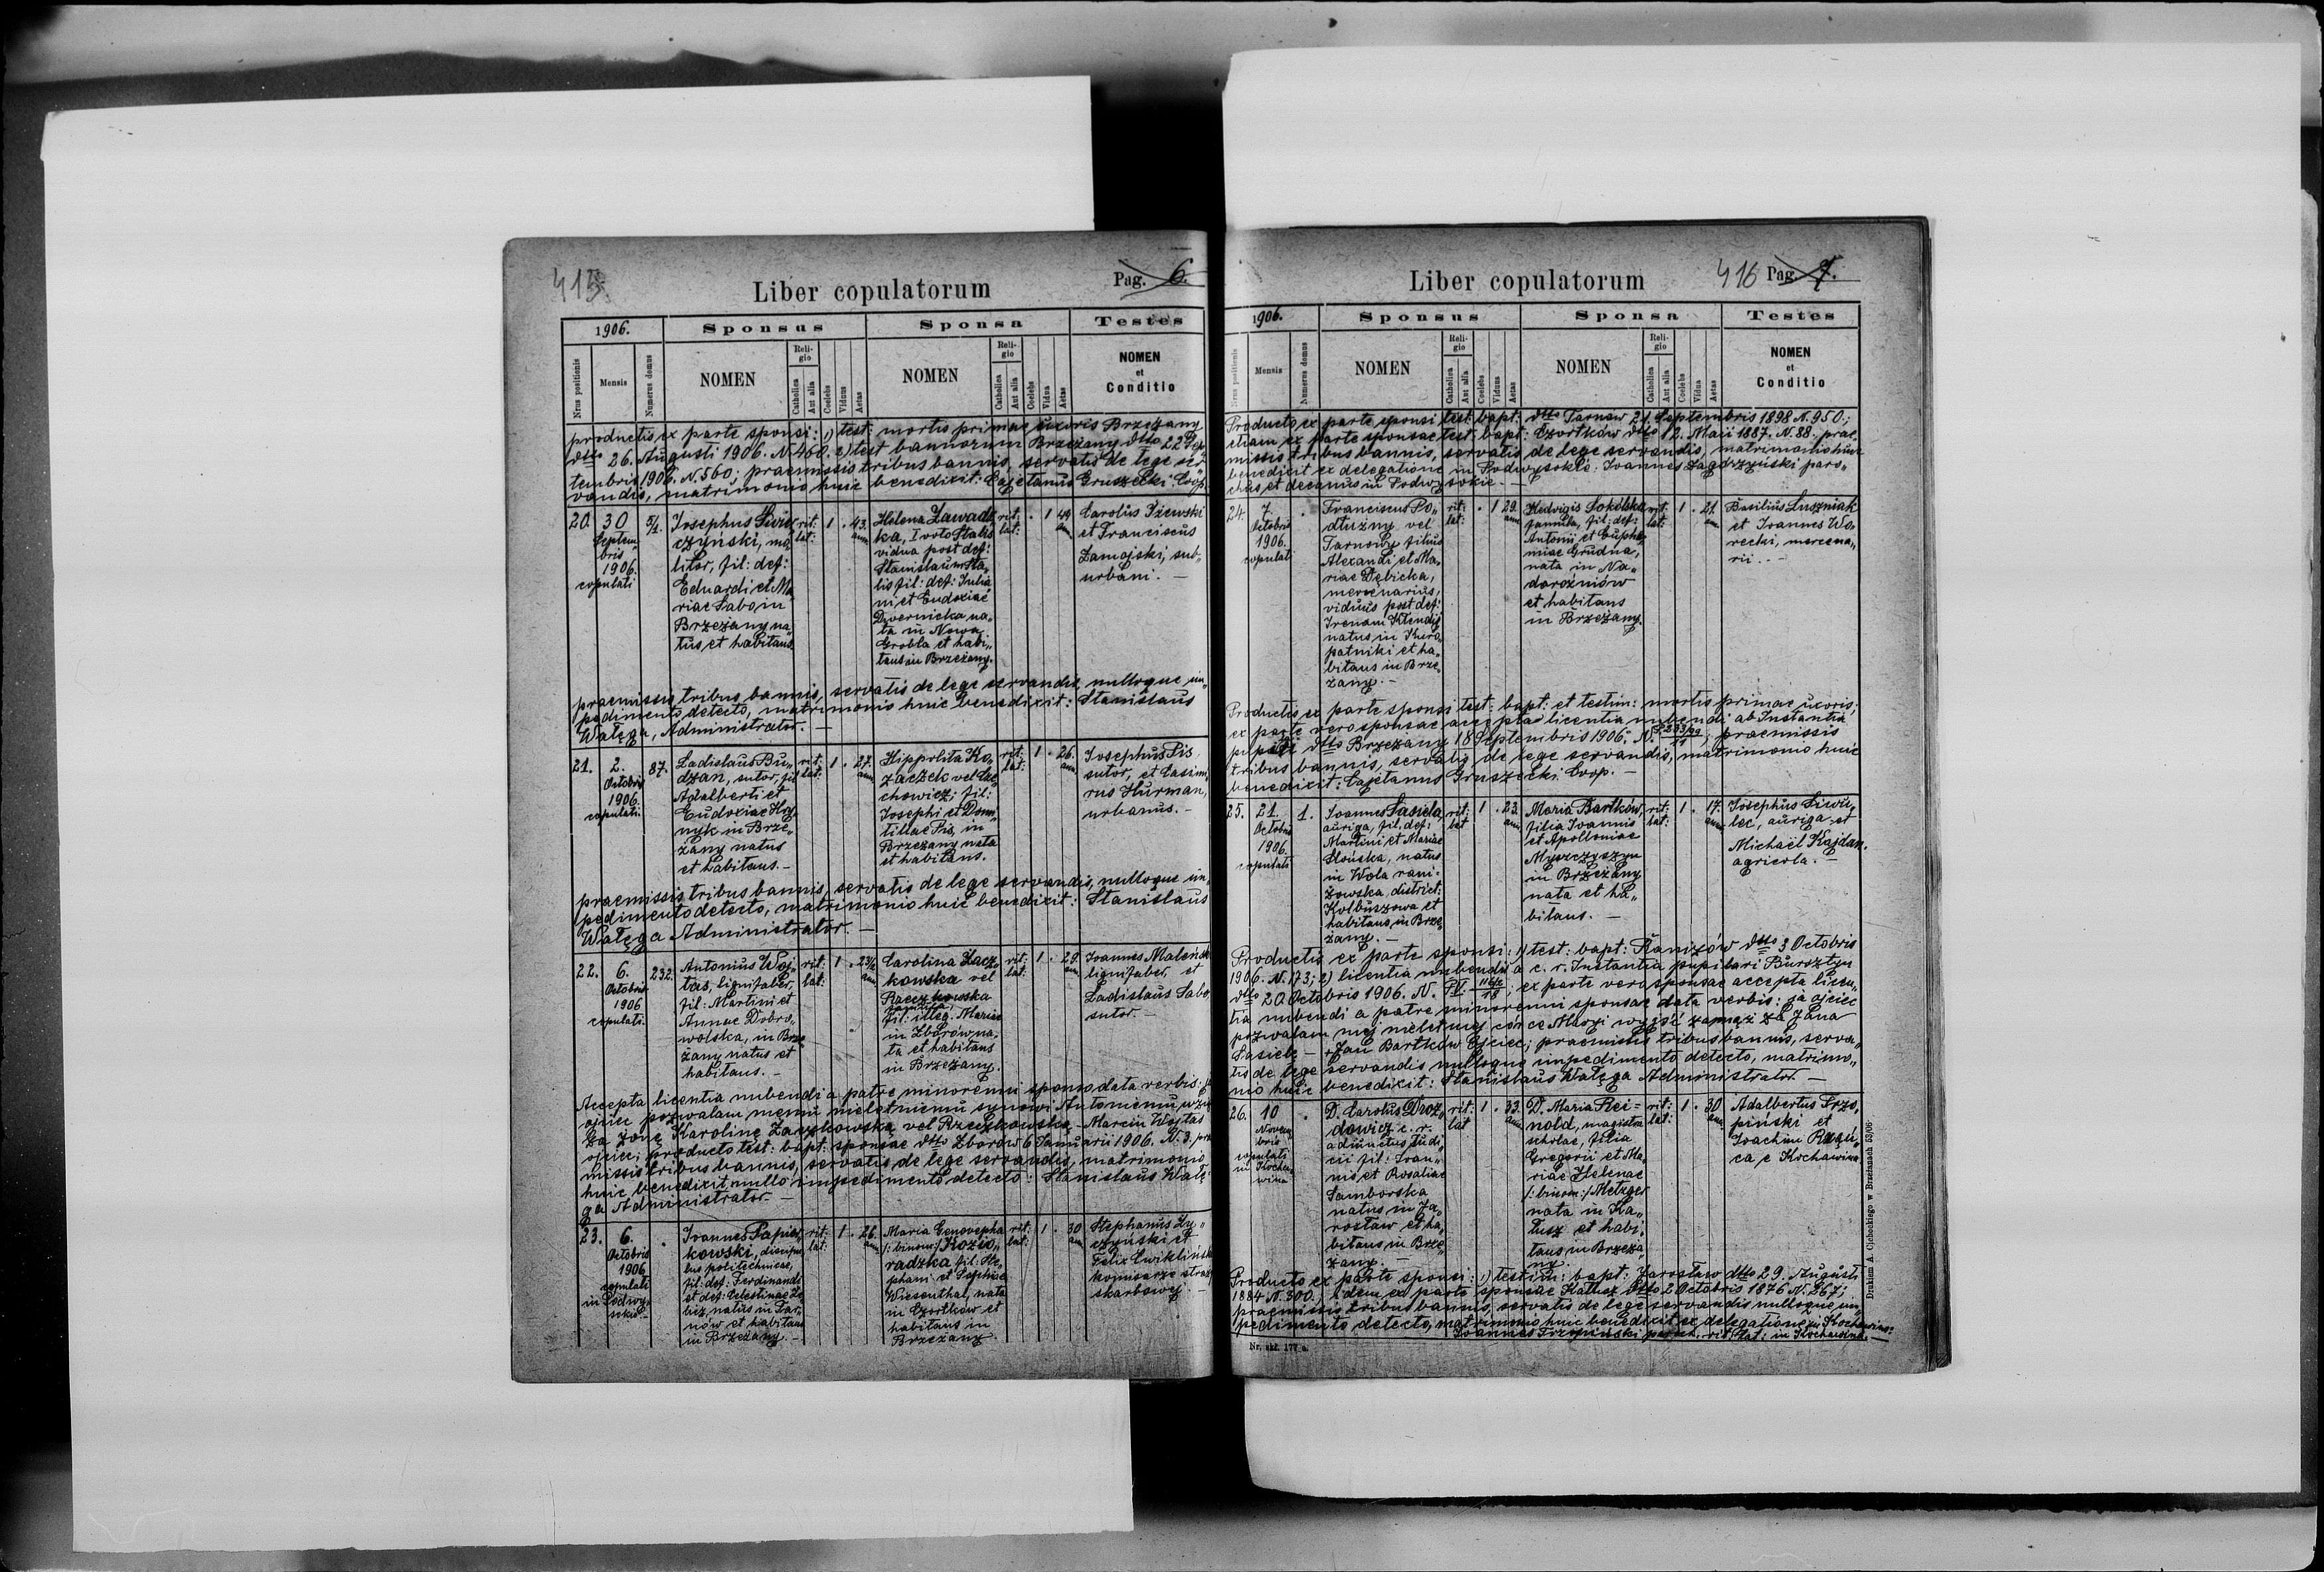 415.
Liber copulatorum
Pag. 6.
1906.
Sponsus
Sponsa
Testes
Nrus positionis
Mensis
Numerus domus
NOMEN
Religio
Catholica
Aut alia
Coelebs
Viduus
Aetas
NOMEN
Religio
Catholica
Aut alia
Coelebs
Vidua
Aetas
NOMEN
et
Conditio
productis ex parte sponsi: 1) test: mortis primae uxoris Brzeżany
dtto 26. Augusti 1906. N. 460. 2) test bannorum Brzeżany dtto 22 Sep„
tembris 1906. N. 560; praemissis tribus bannis, servatis de lege ser„
vandis, matrimonio huic benedixit: Cajetanus Gruszecki Coop.
20. 30
Septem„
bris
1906.
copulati
5/1.
Josephus
czyński, mo„
litor, fil: def:
Eduardi et Ma„
riae Sabo, in
Brzeżany na„
tus et habitans
rit:
lat:
1 . 43.
ann
Helena Zawadz
ka, I voto Stalis
vidua post def:
Stanislaum Sta„
lis fil: def: Julia
ni et Eudoxiae
Dwernicka na„
ta in Nowa
Grobla et habi„
tans in Brzeżany.
rit:
lat:
. 1 49
ann
Carolus Iżewski
et Franciscus
Zamojski, sub„
urbani. —
praemissis tribus bannis, servatis de lege servandis, nulloque im„
pedimento detecto, matrimonio huic benedixit: Stanislaus
Wałęga, Administrator. —
21. 2.
Octobris
1906.
copulati.
87.
Ladislaus Bu„
dzan, sutor, fil
Adalberti et
Eudoxiae Hry
nyk in Brze„
żany natus
et habitans. —
rit:
lat:
1 . 27.
ann
Hippolita Ko„
zaczek vel Lac
chowicz; fil:
Josephi et Domi
tillae Pis, in
Brzeżany nata
et habitans.
rit:
lat:
1 . 26.
ann
Josephus Pis
sutor, et Casimi„
rus Hurman,
urbanus. —
praemissis tribus bannis, servatis de lege servandis, nulloque im„
pedimento detecto, matrimonio huic benedixit: Stanislaus
Wałęga Administrator. —
22. 6.
Octobris
1906
copulati.
232.
Antonius Woj„
tas, lignifaber,
fil: Martini et
Annae Dobro„
wolska, in Brze
żany natus et
habitans. —
rit:
lat:
1 . 23½
ann
Carolina Zacz„
kowska vel
Raczkowska
fil: illeg. Mariae
in Zborów na„
ta et habitans
in Brzeżany.
rit:
lat:
1 . 29.
ann
Joannes Maleńczak
lignifaber, et
Ladislaus Sabo,
sutor. —
Accepta licentia nubendi a patre minorenni sponso data verbis: ja
ojciec pozwalam memu nieletniemu synowi Antoniemu wziąć
za żonę Karolinę Zaczkowską vel Rzeczkowską — Marcin Wojtas
ojciec; producto test: bapt: sponsae dtto Zborów 6 Januarii 1906. N. 3. prae
missis tribus bannis, servatis de lege servandis, matrimonio
huic benedixit nullo impedimento detecto: Stanislaus Wałę„
ga Administrator. —
23. 6.
Octobris
1906
copulati
in Podwy„
sokie
.
Joannes Papier„
kowski, discipu
lus politechnicae,
fil: def: Ferdinandi
et def: Celestinae Ło
biz, natus in Tar„
nów et habitans
in Brzeżany. —
rit:
lat:
1 . 26.
ann
Maria Genovepha
/: binom:/ Kozio„
radzka fil: Ste„
phani et Sophiae
Wiesenthal, nata
in Czortków et
habitans in
Brzeżany.
rit:
lat:
1 . 30
ann
Stephanus Ży„
czyński et
Felix Ćwikliński
komisarze straży
skarbowej. —
416 Pag. 7.
Liber copulatorum
1906.
Sponsus
Sponsa
Testes
Nrus positionis
Mensis
Numerus domus
NOMEN
Religio
Catholica
Aut alia
Coelebs
Viduus
Aetas
NOMEN
Religio
Catholica
Aut alia
Coelebs
Vidua
Aetas
NOMEN
et
Conditio
Producto ex parte sponsi test: bapt: dtto Tarnow 21 Septembris 1898 N. 950.;
etiam ex parte sponsae test: bapt: Czortków dtto 12. Maii 1887. N. 88. prae„
missis tribus bannis, servatis de lege servandis, matrimonio huic
benedixit ex delegatione in Podwysokie: Joannes Zagórzyński paro„
chus et decanus in Podwysokie. —
24. 7.
Octobris
1906.
copulati
.
Franciscus Po„
dłużny vel
Tarnowy filius
Alexandi et Ma„
riae Dębicka,
mercenarius,
viduus post def:
Irenam Klendij
natus in Kuro„
patniki et ha„
bitans in Brze„
żany. —
rit:
lat:
. 1 29.
ann
Hedvigis Sokólska
famula, fil: def:
Antonii et Euphe„
miae Grudna,
nata in Na„
dorożniów
et habitans
in Brzeżany.
rit:
lat:
1 . 21.
ann
Basilius Luszniak
et Joannes Wo„
recki, mercena„
rii. —
Productis ex parte sponsi test: bapt: et testim: mortis primae uxoris;
ex parte vero sponsae accepta licentia nubendi ab Instantia
pupill dtto Brzeżany 18 Septembris 1906. N. P 233/99/11; praemissis
tribus bannis, servatis de lege servandis, matrimonio huic
benedixit: Cajetanus Gruszecki Coop. —
25. 21.
Octobris
1906.
copulati
1.
Joannes Sasiela
auriga, fil: def:
Martini et Mariae
Słońska, natus
in Wola rani=
żowska, district:
Kolbuszowa et
habitans in Brze„
żany. —
rit:
lat
1 . 23.
ann
Maria Bartków,
filia Joannis
et Apolloniae
Myszczyszyn
in Brzeżany
nata et ha„
bitans. —
rit:
lat:
1 . 17.
ann
Josephus Siwis„
lec, auriga, et
Michaël Kajdan.
agricola. —
Productis ex parte sponsi: 1) test: bapt: Raniżów dtto 3 Octobris
1906. N. 173; 2) licentia nubendi a c. r. Instantia pupillari Bursztyn
dtto 20. Octobris 1906. N. P.V. 116/2/18; ex parte vero sponsae accepta licen„
tia nubendi a patre minorenni sponsae data verbis: ja ojciec
pozwalam mej nieletniej córce Maryi wyjść zamąż za Jana
Sasielę — + Jan Bartków Ojciec; praemissis tribus bannis, serva„
tis de lege servandis nulloque impedimento detecto, matrimo„
nio huic benedixit: Stanislaus Wałęga Administrator. —
26. 10
Novem
bris
copulati
in Kocha„
wina
.
D. Carolus Droz„
dowicz c. r.
adiunctus iudi„
cii fil: Joan„
nis et Rosaliae
Samborska
natus in Ja„
rosław et ha„
bitans in Brze„
żany. —
rit:
lat
1 . 33.
ann
D. Maria Rei=
nold, magistra
scholae, filia
Gregorii et Ma„
riae Helenae
/: binom:/ Metzger
nata in Ka„
łusz et habi„
tans in Brzeża„
ny.
rit:
lat:
1 . 30
ann
Adalbertus Trzo„
piński et
Joachim
ca e Kochawina
Producto ex parte sponsi: 1) testim: bapt: Jarosław dtto 29. Augusti
1884 N. 300., idem ex parte sponsae Kałusz dtto 2 Octobris 1876 N. 267;
praemissis tribus bannis, servatis de lege servandis nulloque im„
pedimento detecto, matrimonio huic benedixit ex delegatione in Kochawina:
Joannes Trzopiński paroch. rit: lat: in Kochawina. —
Nr. skł. 177 a.
Drukiem A. Cichockiego w Brzeżanach 53/06